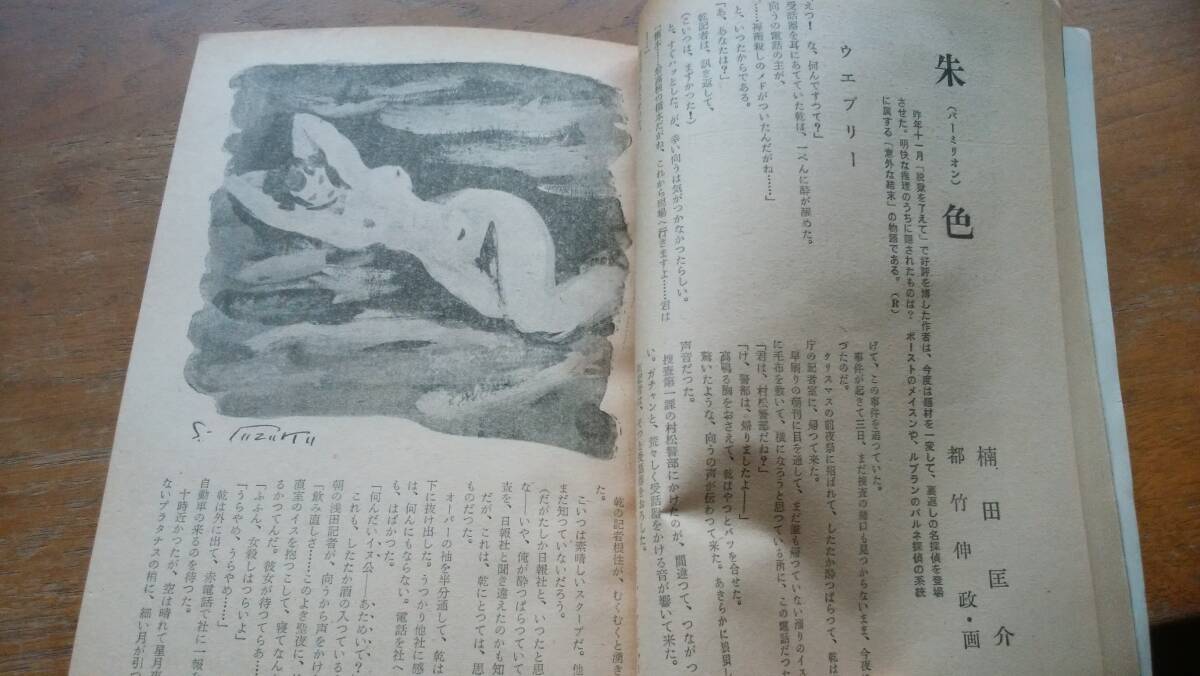 朱色
(バーミリオン)
楠田匡介
都竹伸政・画
昨年十一月「脱獄を了えて」で好評を博した作者は、今度は題材を一変して、裏返しの名探偵を登場
させた。明快な推理のうちに隠されたものは? ポーストのメイスンや、ルブランのバルネ探偵の系統
に属する「意外な結末」の物語である。 (R)
ウエブリー
えつ! な、何んですつて?」
受話器を耳にあてていた乾は、一ぺんに酔が醒めた。
向うの電話の主が、
と、いつたからである。
「あ、あなたは?」
乾記者は、訊き返して、
(こいつは、まずかつた!)
と、すぐハッとした。が、幸い向うは気がつかなかつたらしい。
げて、この事件を追つていた。
事件が起きて三日、まだ捜査の緒口も見つからないまま、今夜は
づたのだ。
クリスマスの前夜祭に招ばれて、したたか酔つぱらつて、乾は
庁の記者室に、帰つて来た。
早刷りの朝刊に目を通して、まだ誰も帰つていない溜りのイス
に毛布を敷いて、横になろうと思つている所に、この電話だつた
「君は、村松警部だね?」
「け、警部は、帰りましたよ――」
高鳴る胸をおさえて、乾はやつとバツを合せた。
驚いたような、向うの声が伝わつて来た。あきらかに狼狽し
声音だつた。
捜査第一課の村松警部にかけたのが、間違つて、つながつ
い。ガチャンと、荒々しく受話器をかける音が響いて来た。
乾の記者根性が、むくむくと湧き
た。
こいつは素晴しいスクープだ。他
まだ知つていないだろう。
(だがたしか日報社と、いつたと思
な――いや、俺が酔つぱらつていて
査を、日報社と聞き違えたのかも知
だが、これは、乾にとつては、思
ものだつた。
オーバーの袖を半分通して、乾は
下に抜け出した。うつかり他社に感
は、何んにもならない。電話を社へ
も、はばかつた。
「何んだいイヌ公――か、ためいて、?
これも、したたか酒の入つている
朝の浅田記者が、向うから声をかけ
「飲み直しさ……このよき聖夜に、
直室のイスを抱つこして、寝てなん
るかつてんだ。彼女が待つてらあ……
「ふふん、女殺しはつらいよ」
「うらやめ、うらやめ……」
乾は外に出て、赤電話で社に一報を
自動車の来るのを待つた。
十時近かつたが、空は晴れて星月夜
ないプラタナスの梢に、細い月が引つ